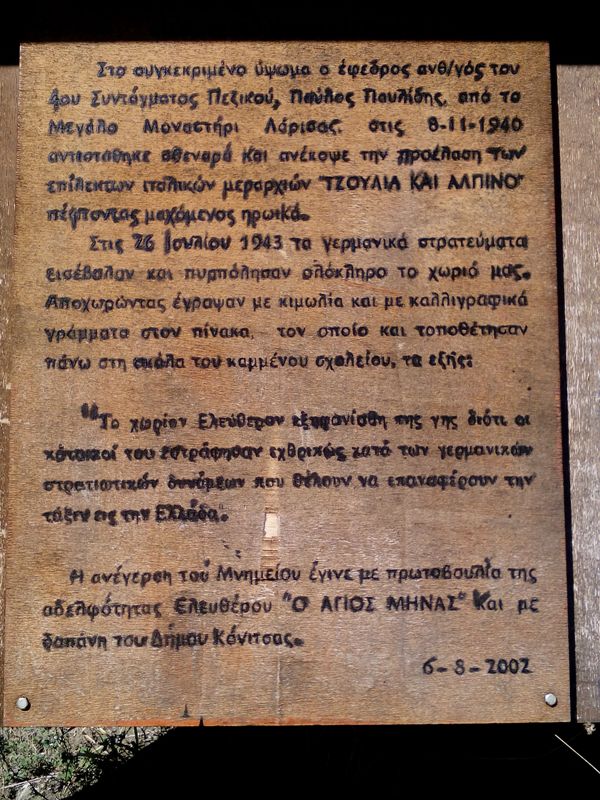 Στο συγκεκριμένο ύψωμα ο έφεδρος ανθ/γός του
4ου Συντάγματος Πεζικού, Παύλος Παυλίδης, από το
Μεγάλο Μοναστήρι Λάρισας, στις 8-11-1940
αντιστάθηκε σθεναρά και ανέκοψε την προέλαση των
επίλεκτων ιταλικών μεραρχιών "ΤΖΟΥΛΙΑ ΚΑΙ ΑΛΠΙΝΟ"
πέφτοντας μαχόμενος ηρωικά.
Στις 26 Ιουλίου 1943 τα γερμανικά στρατεύματα
εισέβαλαν και πυρπόλησαν ολόκληρο το χωριό μας.
Αποχωρώντας έγραψαν με κιμωλία και με καλλιγραφικά
γράμματα στον πίνακα, τον οποίο και τοποθέτησαν
πάνω στη σκάλα του καμμένου σχολείου, τα εξής:
"Το χωρίον Ελεύθερον εξηφανίσθη της γης διότι οι
κάτοικοί του εστράφησαν εχθρικώς κατά των γερμανικών
στρατιωτικών δυνάμεων που θέλουν να επαναφέρουν την
τάξιν εις την Ελλάδα.
Η ανέγερση του Μνημείου έγινε με πρωτοβουλία της
αδελφότητας Ελευθέρου "Ο ΑΓΙΟΣ ΜΗΝΑΣ" και με
δαπάνη του Δήμου Κόνιτσας.
6-8-2002